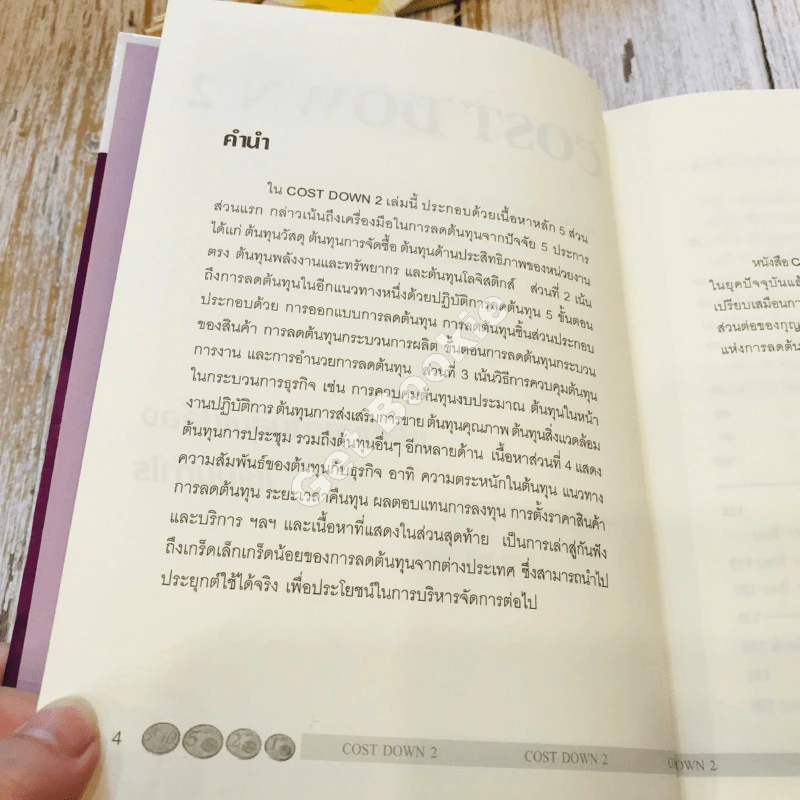 COST DOWN 2
คำนำ
ใน COST DOWN 2 เล่มนี้ ประกอบด้วยเนื้อหาหลัก 5 ส่วน
ส่วนแรก กล่าวเน้นถึงเครื่องมือในการลดต้นทุนจากปัจจัย 5 ประการ
ได้แก่ ต้นทุนวัสดุ ต้นทุนการจัดซื้อ ต้นทุนด้านประสิทธิภาพของหน่วยงาน
ตรง ต้นทุนพลังงานและทรัพยากร และต้นทุนโลจิสติกส์ ส่วนที่ 2 เน้น
ถึงการลดต้นทุนในอีกแนวทางหนึ่งด้วยปฏิบัติการลดต้นทุน 5 ขั้นตอน
ประกอบด้วย การออกแบบการลดต้นทุน การลดต้นทุนชิ้นส่วนประกอบ
ของสินค้า การลดต้นทุนกระบวนการผลิต ขั้นตอนการลดต้นทุนกระบวน
การงาน และการอำนวยการลดต้นทุน ส่วนที่ 3 เน้นวิธีการควบคุมต้นทุน
ในกระบวนการธุรกิจ เช่น การควบคุมต้นทุนงบประมาณ ต้นทุนในหน้า
งานปฏิบัติการ ต้นทุนการส่งเสริมการขาย ต้นทุนคุณภาพ ต้นทุนสิ่งแวดล้อม
ต้นทุนการประชุม รวมถึงต้นทุนอื่นๆ อีกหลายด้าน เนื้อหาส่วนที่ 4 แสดง
ความสัมพันธ์ของต้นทุนกับธุรกิจ อาทิ ความตระหนักในต้นทุน แนวทาง
การลดต้นทุน ระยะเวลาคืนทุน ผลตอบแทนการลงทุน การตั้งราคาสินค้า
และบริการ ฯลฯ และเนื้อหาที่แสดงในส่วนสุดท้าย เป็นการเล่าสู่กันฟัง
ถึงเกร็ดเล็กเกร็ดน้อยของการลดต้นทุนจากต่างประเทศ ซึ่งสามารถนำไป
ประยุกต์ใช้ได้จริง เพื่อประโยชน์ในการบริหารจัดการต่อไป
Get Bookie
4
COST DOWN 2 COST DOWN 2 DOWN 2
หนังสือ C
ในยุคปัจจุบันแล้
เปรียบเสมือนกา
ส่วนต่อของกุญ
แห่งการลดต้น